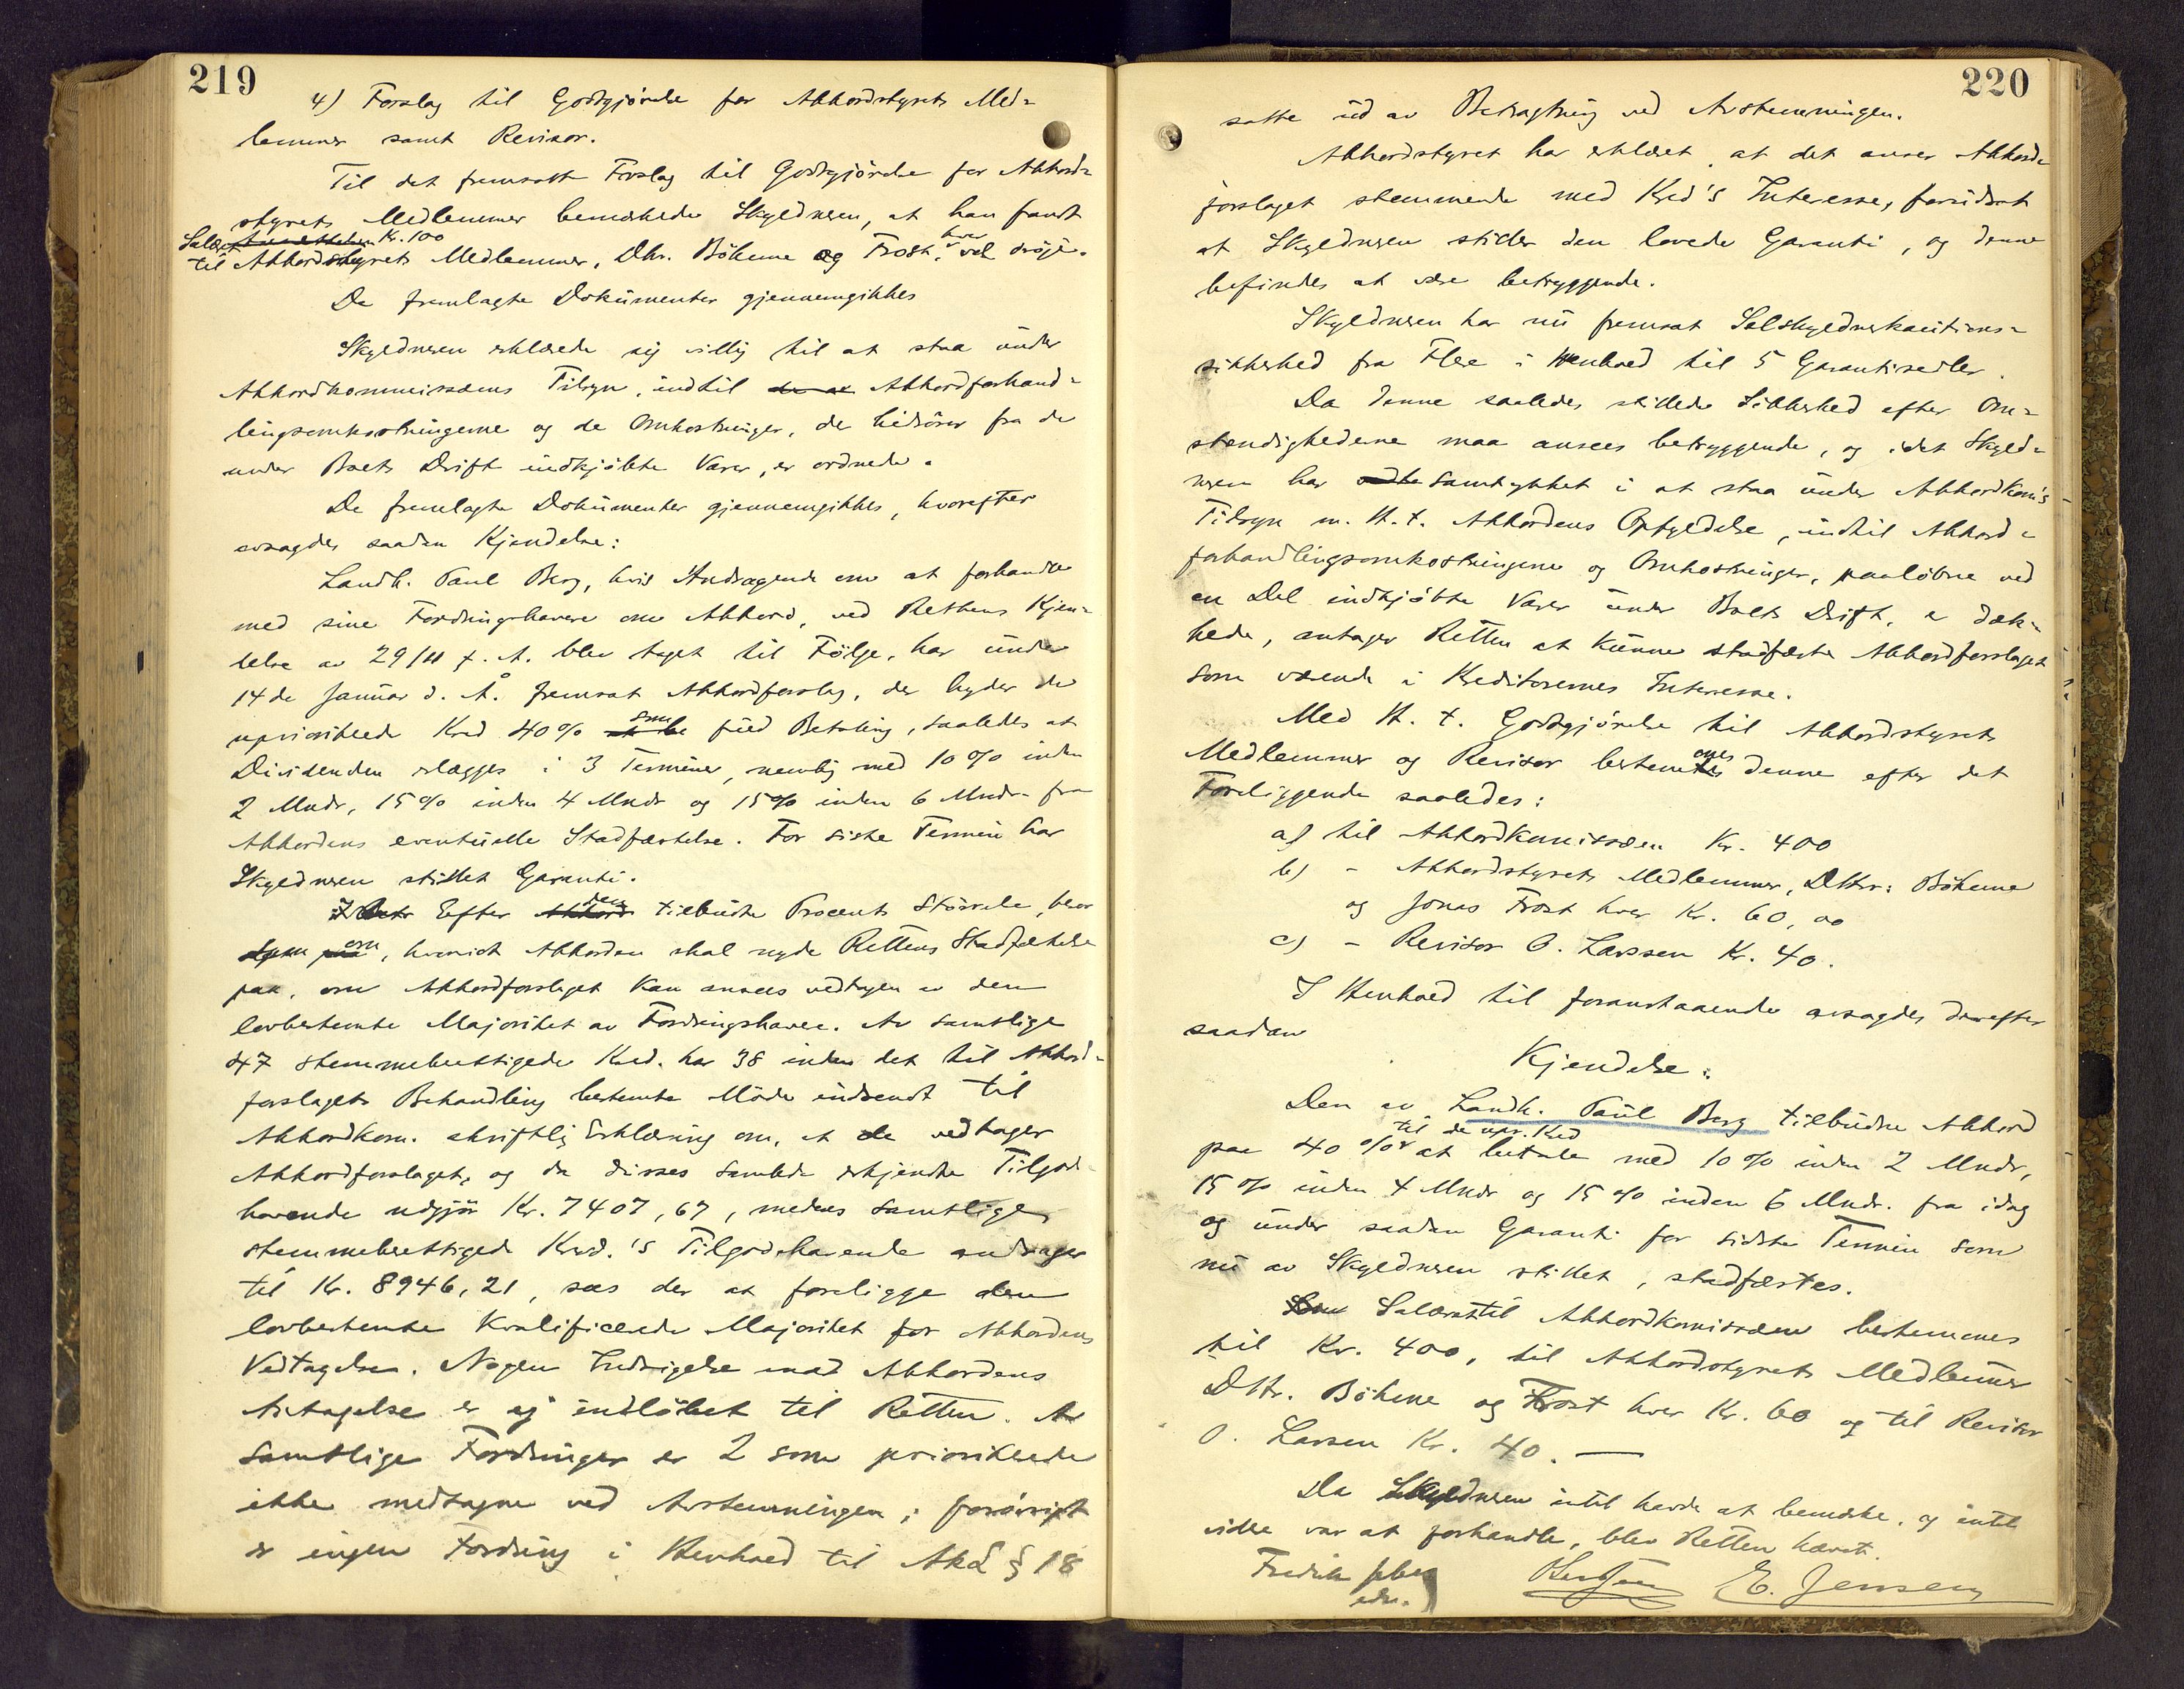 219
4) Forslag til Godtgjörelse for Akkordstyrets Med-
lemmer samt Revisor.
Til det fremsatte Forslag til Godtgjörelse for Akkord-
styrets Medlemmer bemærkede Skyldneren, at han fandt
Salær Kr. 100
til Akkordstyrets Medlemmer, Dhr. Böhme og Frost, hver vel dröje.
De fremlagte Dokumenter gjennemgikkes
Skyldneren erklærede sig villig til at staa under
Akkordkommissærens Tilsyn, indtil Akkordforhand-
lingsomkostningerne og de Omkostninger, der hidrörer fra de
under Boets Drift indkjöbte Varer, er ordnede.
De fremlagte Dokumenter gjennemgikkes, hvorefter
avsagdes saadan Kjendelse:
Landh. Paul Berg, hvis Andragende om at forhandle
med sine Fordringshavere om Akkord, ved Rettens Kjen-
delse av 29/11 f. A. blev taget til Fölge, har under
14de Januar d. Å. fremsat Akkordforslag, der byder de
uprioriterede Kred 40% som fuld Betaling, saaledes at
Dividenden erlægges i 3 Terminer, nemlig med 10% inden
2 Mndr, 15% inden 4 Mndr og 15% inden 6 Mndr fra
Akkordens eventuelle Stadfæstelse. For sidste Termin har
Skyldneren stillet Garanti.
Efter den tilbudte Procents Störrelse, beror
om, hvorvidt Akkorden skal nyde Rettens Stadfæstelse
paa, om Akkordforslaget kan ansees vedtagen av den
lovbestemte Majoritet av Fordringshavere. Av samtlige
47 stemmeberettigede Kred. har 38 inden det til Akkord-
forslagets Behandling bestemte Möde indsendt til
Akkordkom. skriftlig Erklæring om, at de vedtager
Akkordforslaget, og da disses samlede erkjendte Tilgode-
havende udgjör Kr. 7407,67, medens samtlige
stemmeberettigede Kred.'s Tilgodehavende andrager
til Kr. 8946,21, sees der at foreligge den
lovbestemte kvalificerede Majoritet for Akkordens
Vedtagelse. Nogen Indsigelse mod Akkordens
Antagelse er ej indlöbet til Retten. Av
samtlige Fordringer er 2 som prioriterede
ikke medtagne ved Avstemningen; forövrigt
er ingen Fordring i Henhold til Akl § 18
220
satte ud av Betragtning ved Avstemningen.
Akkordstyret har erklæret, at det anser Akkord-
forslaget stemmende med Kred's Interesse, forudsat
at Skyldneren stiller den lovede Garanti, og denne
befindes at være betryggende.
Skyldneren har nu fremsat Selvskyldnerkautions-
sikkerhed fra Flere i Henhold til 5 Garantisedler.
Da denne saaledes stillede Sikkerhed efter Om-
stændighederne maa ansees betryggende, og idet Skyld-
neren har samtykket i at staa under Akkordkom's
Tilsyn m. H. t. Akkordens Opfyldelse, indtil Akkord-
forhandlingsomkostningerne og Omkostninger, paalöbne ved
en Del indkjöbte Varer under Boets Drift, er dæk-
kede, antager Retten at kunne stadfæste Akkordforslaget
som værende i Kreditorernes Interesse.
Med H. t. Godtgjörelse til Akkordstyrets
Medlemmer og Revisor bestemmes denne efter det
Foreliggende saaledes:
a) til Akkordkomissæren Kr. 400
b) - Akkordstyrets Medlemmer, DHr: Böhme
og Jonas Frost hver Kr. 60,00
c) - Revisor O. Larssen Kr. 40.
I Henhold til foranstaaende avsagdes derefter
saadan
Kjendelse:
Den av Landh. Paul Berg tilbudne Akkord
paa 40% til de upr. Kred at betale med 10% inden 2 Mndr,
15% inden 4 Mndr og 15% inden 6 Mndr. fra idag
og under saadan Garanti for sidste Termin som
nu av Skyldneren stillet, stadfæstes.
Salæret til Akkordkomissæren bestemmes
til Kr. 400, til Akkordstyrets Medlemmer
DHr. Böhme og Frost hver Kr. 60 og til Revisor
O. Larsen Kr. 40.—
Da Skyldneren intet havde at bemærke, og intet
videre var at forhandle, blev Retten hævet.
Fredrik
edsv.
E. Jensen